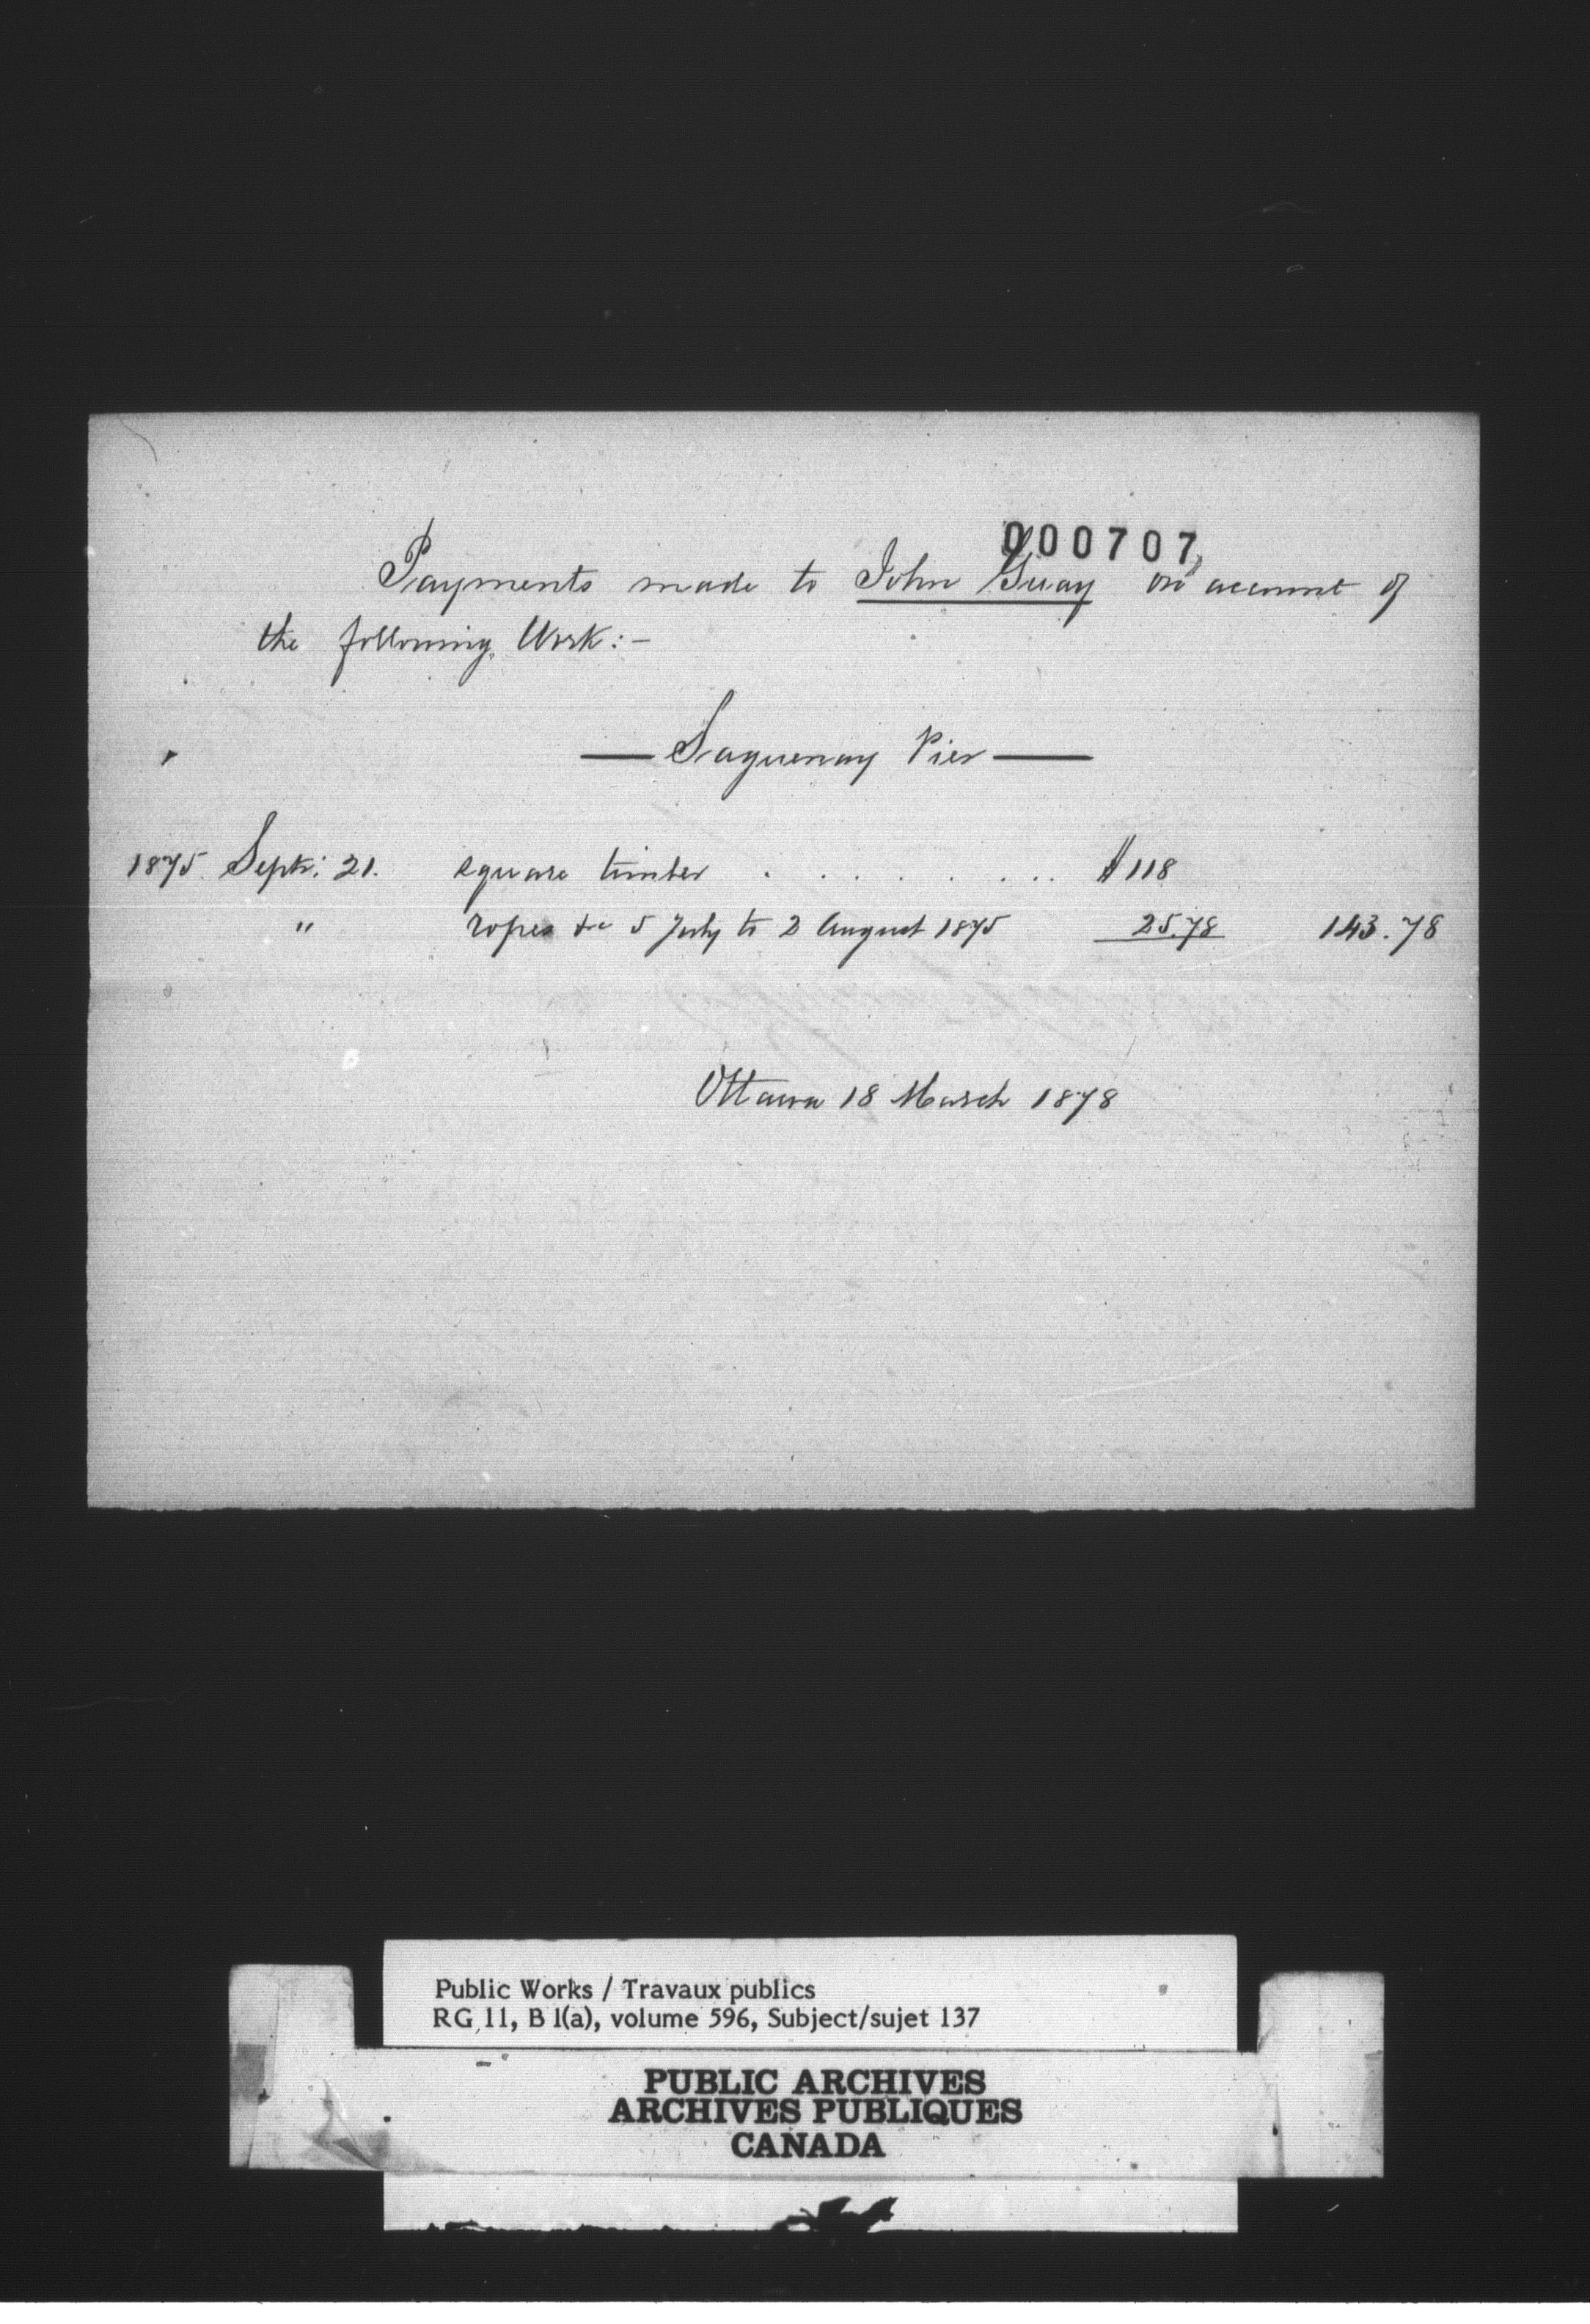 000707
Payments made to John Guay on account of
the following Work:-
— Saguenay Pier —
1875. Septr: 21. square timber . . . . . . . . $118
" ropes &c 5 July to 2 August 1875 25.78 143.78
Ottawa 18 March 1878
Public Works / Travaux publics
RG 11, B 1(a), volume 596, Subject/sujet 137
PUBLIC ARCHIVES
ARCHIVES PUBLIQUES
CANADA